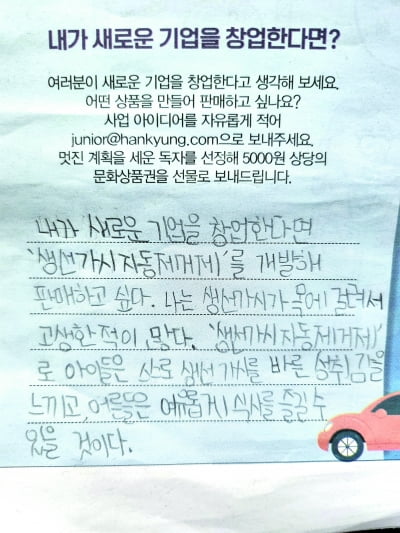 내가 새로운 기업을 창업한다면?
여러분이 새로운 기업을 창업한다고 생각해 보세요.
어떤 상품을 만들어 판매하고 싶나요?
사업 아이디어를 자유롭게 적어
junior@hankyung.com으로 보내주세요.
멋진 계획을 세운 독자를 선정해 5000원 상당의
문화상품권을 선물로 보내드립니다.
내가 새로운 기업을 창업한다면
'생선가시자동제거제'를 개발해
판매하고 싶다. 나는 생선가시가 목에 걸려서
고생한 적이 많다. '생선가시자동제거제'
로 아이들은 생선 가시를 바른 성취감을
느끼고, 어른들은 여유롭게 식사를 즐길 수
있을 것이다.